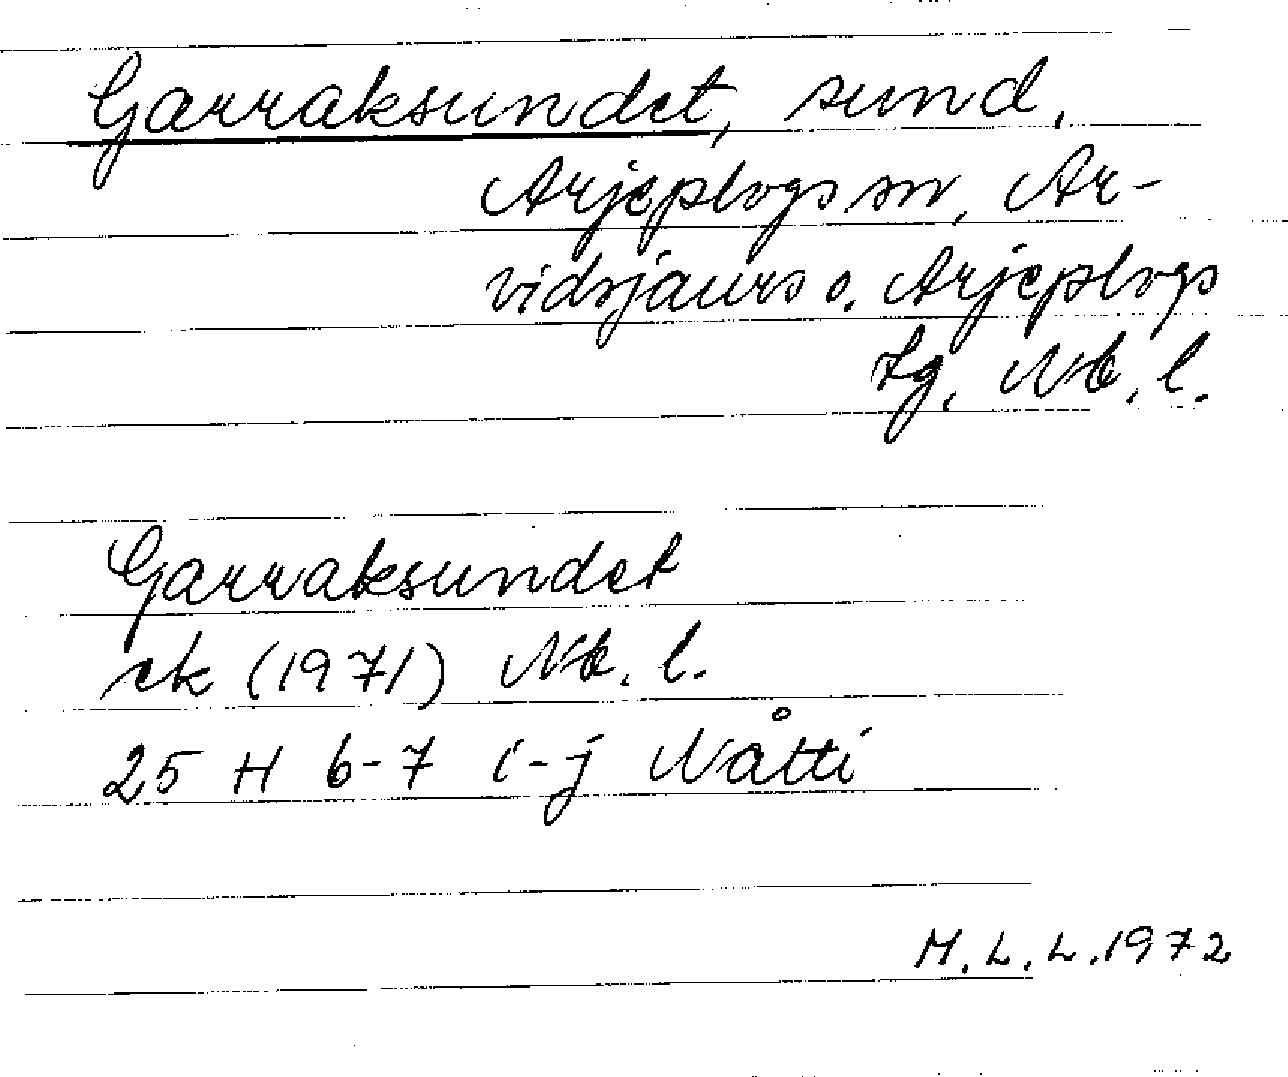 Garraksundet, sund.
Arjeplogs sn, Ar-
vidsjaurs o. Arjeplogs
tg, Nb. l.
Garraksundet
ek (1971) Nb. l.
25 H 6-7 i-j Nåtti
M.L.L. 1972